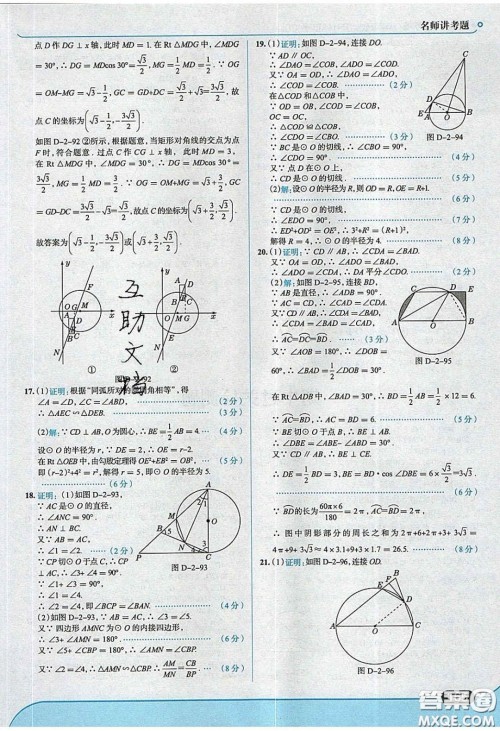 名师讲考题
点 D 作 DG ⊥ x 轴，此时 MD = 1. 在 Rt △MDG 中，∠MDG
= 30°，∴ DG = MDcos 30° = √3/2，MG = 1/2 MD = 1/2. ∵ OG =
OM - MG = √3 - 1/2，GC = GD + DC = √3/2 + √3 = 3√3/2，故
点 C 的坐标为(√3 - 1/2, -3√3/2).
如图 D-2-92 ②所示，根据题意，当矩形对角线的交点为点
F 时，符合题意. 过点 C 作 CG ⊥ x 轴，此时 MD = 3，
在 Rt △MDG 中，∠MDG = 30°，∴ DG = MDcos 30° =
3√3/2，MG = 1/2 MD = 3/2. ∵ OG = OM + MG = √3 + 3/2，GC
= GD - DC = 3√3/2 - √3 = √3/2，故点 C 的坐标为(√3 + 3/2, √3/2).
故答案为(√3 - 1/2, -3√3/2)或(√3 + 3/2, √3/2).
① ②
互助文档
17. (1)证明：根据“同弧所对的圆周角相等”，得
∠A = ∠D，∠C = ∠ABD， (2 分)
∴ △AEC ∽ △DEB. (3 分)
(2)解：∵ CD ⊥ AB，O 为圆心，∴ BE = 1/2 AB = 4. (4 分)
设⊙O 的半径为 r，∵ DE = 2，∴ OE = r - 2.
在 Rt △OEB 中，由勾股定理得 OE² + EB² = OB²， (5 分)
即 (r - 2)² + 4² = r²，解得 r = 5，即⊙O 的半径为 5.
(6 分)
18. 证明：(1)如图 D-2-93，
∵ AC 是⊙O 的直径，
∴ ∠ANC = 90°.
∴ AN ⊥ BC.
又∵ AB = AC，
∴ ∠1 = ∠2. (2 分)
∵ CP 切⊙O 于点 C，
∴ AC ⊥ PC，∴ ∠3 + ∠4 = 90°.
∵ ∠1 + ∠3 = 90°，
∴ ∠1 = ∠4.
∴ ∠2 = ∠4，即∠BCP = ∠BAN. (4 分)
图 D-2-93
(2)如图 D-2-93，∵ AB = AC，∴ ∠3 = ∠5.
又∵ 四边形 AMNC 为⊙O 的内接四边形，
∴ ∠3 + ∠AMN = 180°. (6 分)
又∵ ∠5 + ∠CBP = 180°，∴ ∠AMN = ∠CBP.
又∵ ∠2 = ∠4，∴ △AMN ∽ △CBP. ∴ AM/MN = CB/BP. (8 分)
19. (1)证明：如图 D-2-94，连接 DO.
∵ AD // OC，
∴ ∠DAO = ∠COB，∠ADO = ∠COD.
又∵ OA = OD，∴ ∠DAO = ∠ADO.
∴ ∠COD = ∠COB. (2 分)
在△COD 和△COB 中，
∵ OD = OB，∠COD = ∠COB，
OC = OC，
∴ △COD ≌ △COB.
∴ ∠CDO = ∠CBO.
∵ BC 是⊙O 的切线，∴ ∠CBO = 90°.
∴ ∠CDO = 90°. (4 分)
又∵ 点 D 在⊙O 上，
∴ CD 是⊙O 的切线. (5 分)
图 D-2-94
(2)解：设⊙O 的半径为 R，则 OD = R，OE = R + 1.
(6 分)
∵ CD 是⊙O 的切线，
∴ ∠EDO = 90°. (7 分)
∴ ED² + OD² = OE²，∴ 3² + R² = (R + 1)²，
解得 R = 4，∴ ⊙O 的半径为 4. (8 分)
20. (1)证明：∵ CD // AB，∴ ∠CDA = ∠BAD.
又∵ OA = OD，∴ ∠ADO = ∠BAD，
∴ ∠ADO = ∠CDA，∴ DA 平分∠CDO. (2 分)
(2)解：如图 D-2-95，连接 BD，
∵ AB 是直径，∴ ∠ADB = 90°.
∵ AC = CD，∴ ∠CAD = ∠CDA.
又∵ CD // AB，∴ ∠CDA = ∠BAD，
∴ ∠CDA = ∠BAD = ∠CAD，
∴ AC = DC = BD. (3 分)
又∵ ∠AOB = 180°，
∴ ∠DOB = 60°. (4 分)
图 D-2-95
∵ ∠BAD = 30°，
在 Rt △ADB 中，∠ADB = 90°，∴ BD = 1/2 AB = 1/2 × 12 = 6.
∵ AC = BD，∴ AC = BD = 6. (5 分)
∵ BE 切⊙O 于点 B，∴ BE ⊥ AB.
∴ ∠DBE = ∠ABE - ∠ABD = 30°.
又∵ CD // AB，∴ BE ⊥ CE.
∴ DE = 1/2 BD = 3，BE = BD · cos∠DBE = 6 × √3/2 = 3√3.
(6 分)
∵ BD 的长为 60π×6/180 = 2π，AC = BD = 2π.
∴ 图中阴影部分的周长之和为 2π + 6 + 2π + 3 + 3√3 =
4π + 9 + 3√3 ≈ 4×3.1 + 9 + 3×1.7 = 26.5. (8 分)
21. (1)证明：如图 D-2-96，连接 OD.
图 D-2-96
答案圈
MXQE.COM